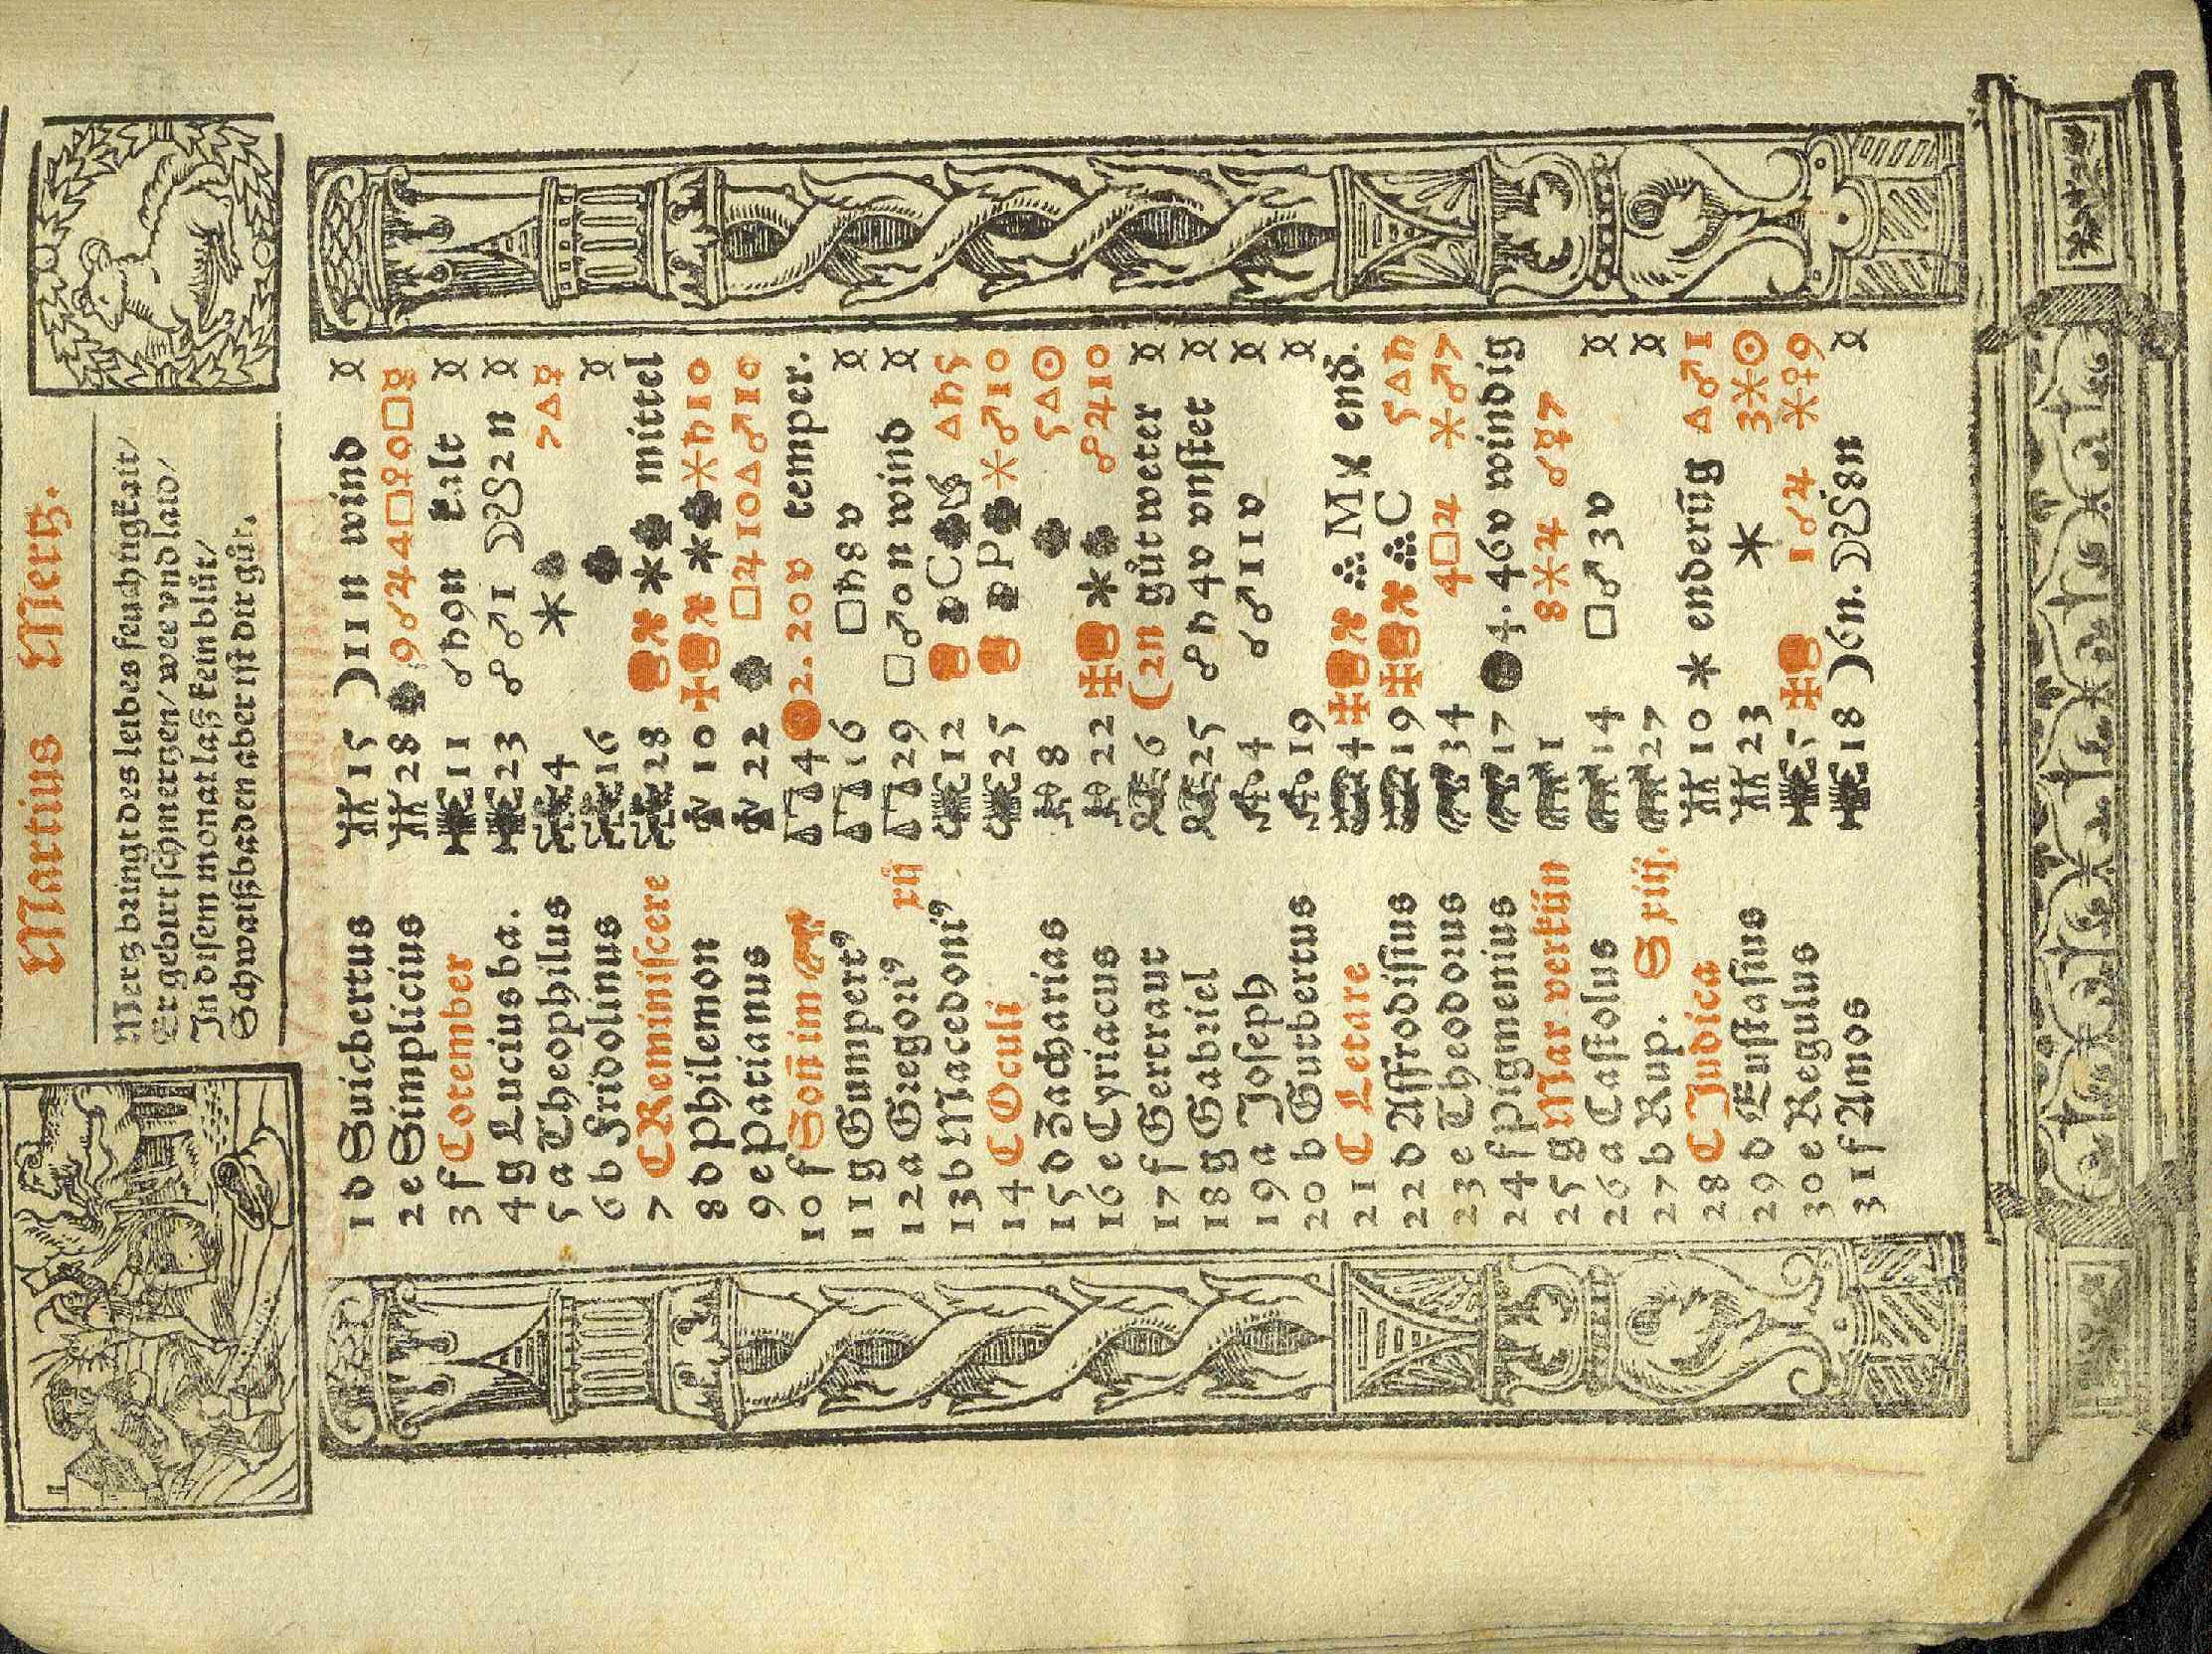 Martius Mertz.
Mertz bringt des leibes feuchtigkait/
Er gebirt schmertzen/ wee vnd laid/
In disem monat laß kein blůt/
Schwaißbaden aber ist dir gůt.
1 d Suicbertus 15 ☽ 11 n wind
2 e Simplicius 28 9 ☌ ♃ 4 □ ♀ 0 □ ☿
3 f Cotember 11 ☌ ♄ 9 n kalt
4 g Lucius ba. 23 ☍ ♂ 1 2 n
5 a Theophilus 4 7 △ ☿
6 b Fridolinus 16
7 C Reminiscere 28 mittel
8 d Philemon 10 ✶ ♄ 10
9 e Patianus 22 □ ♃ 10 △ ♂ 10
10 f Soñ im 4 2. 20 v temper.
11 g Gumpert⁹ 16 □ ♄ 8 v
12 a Gregori⁹ xij 29 □ ♂ 0 n wind
13 b Macedoni⁹ 12 C △ ♄ 5
14 C Oculi 25 P ✶ ♂ 10
15 d Zacharias 8 5 △ ☉
16 e Cyriacus 22 ☍ ♃ 10
17 f Gertraut 6 (2 n gůt weter
18 g Gabriel 25 ☍ ♄ 4 v vnstet
19 a Joseph 4 ☌ ♂ 11 v
20 b Gutbertus 19
21 C Letare 4 M end.
22 d Affrodisius 19 C 5 △ ♄
23 e Theodorus 34 4 □ ♃ ✶ ♂ 7
24 f Pigmenius 17 4. 46 v windig
25 g Mar verkün 1 8 ✶ ♃ ☌ ☿ 7
26 a Castolus 14 □ ♂ 3 v
27 b Rup. S xiij. 27
28 C Judica 10 enderũg △ ♂ 1
29 d Eustasius 23 3 ✶ ☉
30 e Regulus 5 1 ☌ ♃ ✶ ♀ 9
31 f Amos 18 ☽ 6 n. 8 n